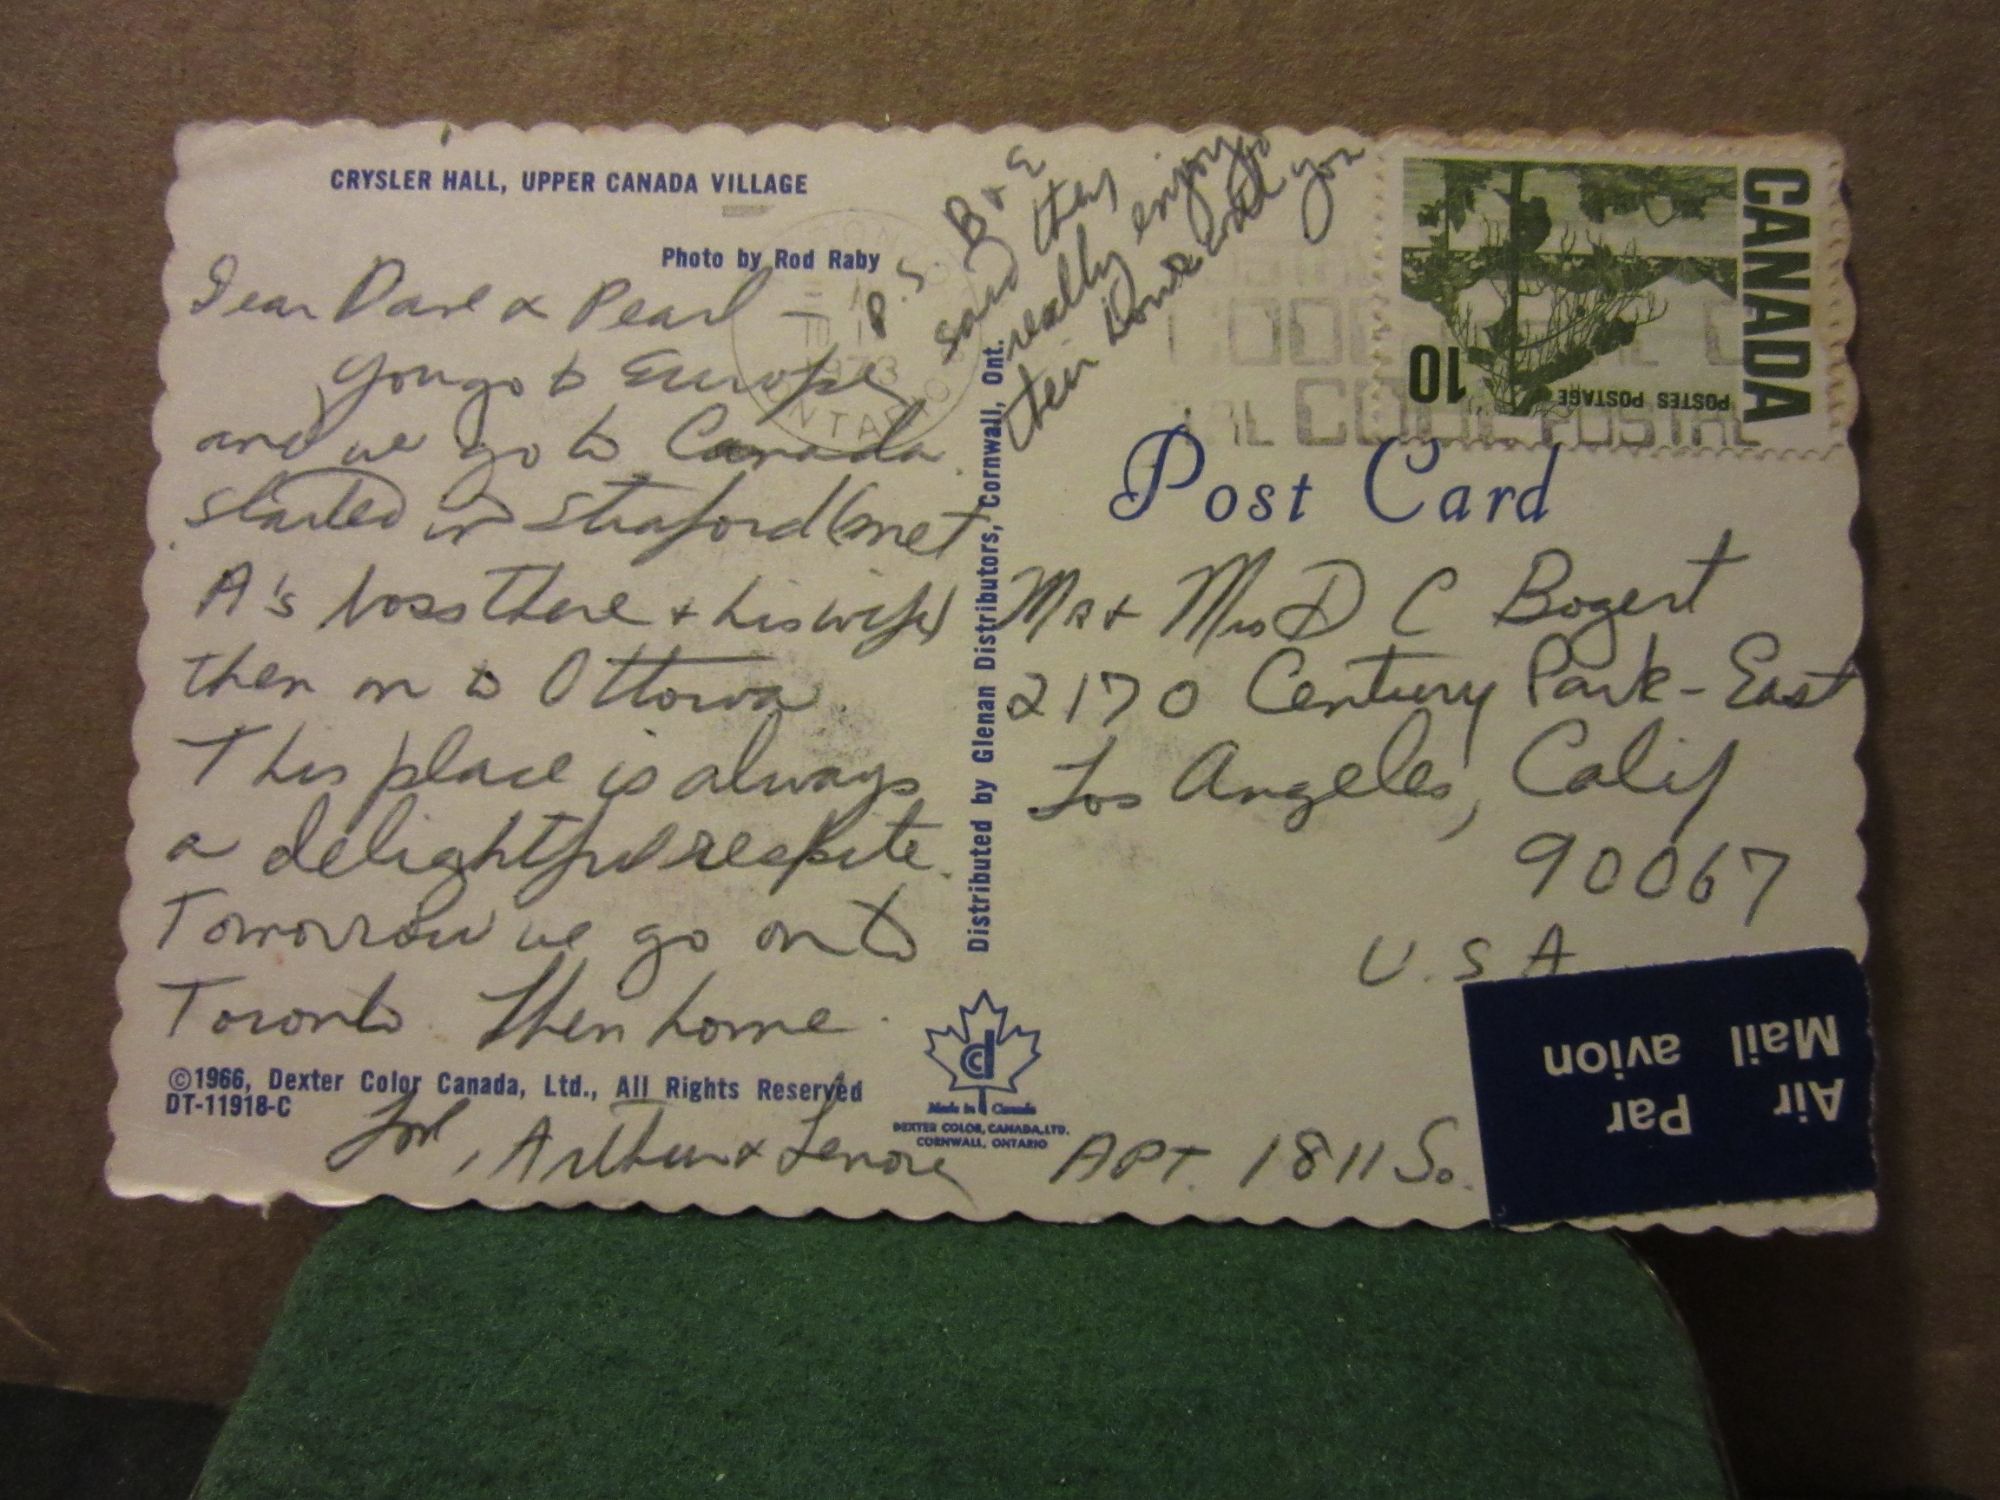 CRYSLER HALL, UPPER CANADA VILLAGE
Photo by Rod Raby
Dear Dave & Pearl -
You go to Europe
and we go to Canada.
started in Straford (met
A's boss there + his wife)
then on to Ottowa.
This place is always
a delightful respite.
Tomorrow we go on to
Toronto. Then home.
©1966, Dexter Color Canada, Ltd., All Rights Reserved
DT-11918-C
Love, Arthur & Lenore
P.S. B & E
said they
really enjoy
their with you
Distributed by Glenan Distributors, Cornwall, Ont.
Made In Canada
DEXTER COLOR, CANADA, LTD.
CORNWALL, ONTARIO
1973
ONTARIO
CANADA
10
POSTES POSTAGE
CODE POSTAL
Post Card
Mr + Mrs D C Bogert
2170 Century Park - East
Los Angeles, Calif
90067
U.S.A
APT. 1811 So.
Air Mail
Par avion